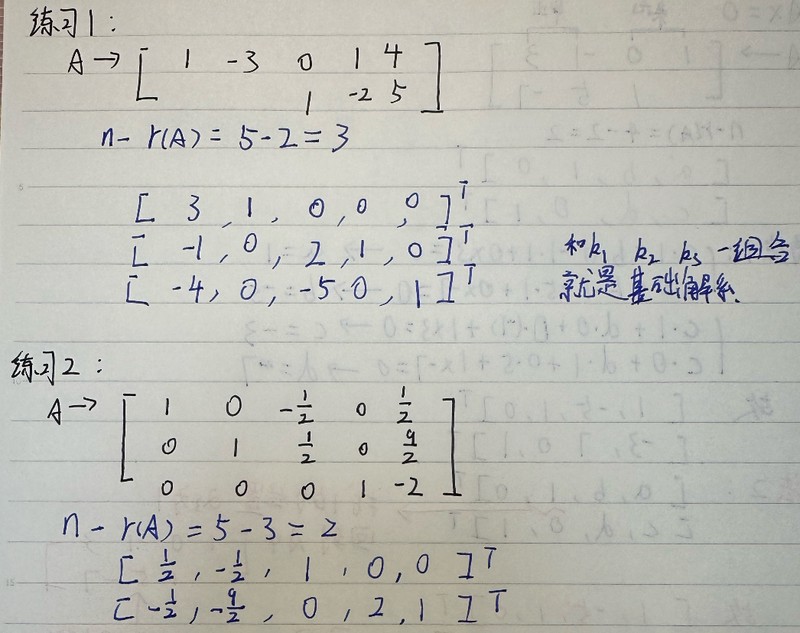 练习1:
A → [ 1 -3 0 1 4
1 -2 5 ]
n - r(A) = 5 - 2 = 3
[ 3 , 1 , 0 , 0 , 0 ]ᵀ
[ -1 , 0 , 2 , 1 , 0 ]ᵀ 和k₁ k₂ k₃ 一组合
[ -4 , 0 , -5 0 , 1 ]ᵀ 就是基础解系.
练习2:
A → [ 1 0 -1/2 0 1/2
0 1 1/2 0 9/2
0 0 0 1 -2 ]
n - r(A) = 5 - 3 = 2
[ 1/2 , -1/2 , 1 , 0 , 0 ]ᵀ
[ -1/2 , -9/2 , 0 , 2 , 1 ]ᵀ